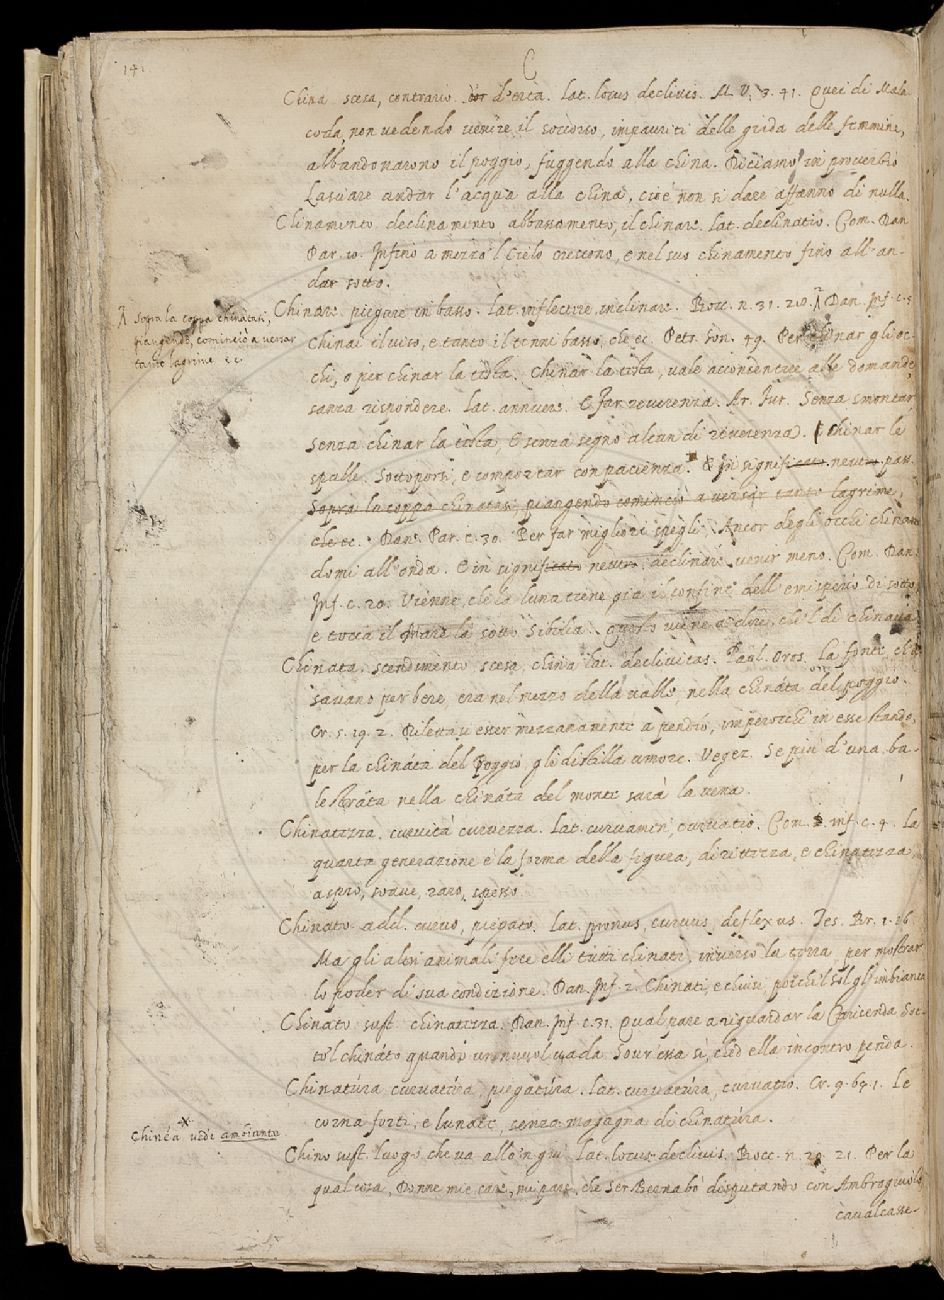 141
C
China. scesa, contrario d'erta. Lat. locus declivis. M. V. 3. 41. Quei di Male
coda, non vedendo venire il soccorso, impauriti delle grida delle femmine,
abbandonarono il poggio, fuggendo alla china. Diciamo in proverbio
Lasciare andar l'acqua alla china, cioè non si dare affanno di nulla.
Chinamento. declinamento, abbassamento, il chinare. Lat. declinatio. Com. Dan.
Par. 10. Infino a mezzo 'l Cielo crescono, e nel suo chinamento fino all'an-
dar sotto.
Chinare. piegare in basso. Lat. inflectere, inclinare. Bocc. n. 31. 20. Λ Dan. Inf. c. 5
Λ Sopra la coppa chinatasi,
piangendo, cominciò a versar
tante lagrime ec.
Chinai il viso, e tanto il tenni basso, che ec. Petr. Son. 49. Per chinar gli oc-
chi, o per chinar la testa. Chinar la testa, vale acconsentire alle domande,
sanza rispondere. Lat. annuere. E far reverenza. Ar. Fur. Senza smontar
senza chinar la testa, E senza segno alcun di reverenza. Chinar le
spalle. Sottoporsi, e comportar con pacienza. E in significato neutro pass.
Sopra la coppa chinatasi, piangendo cominciò a versar tante lagrime,
che ec. Dan. Par. c. 30. Per far migliori spegli, Ancor degli occhi chinan
domi all'onda. E in significato neutro, declinare, venir meno. Com. Dan.
Inf. c. 20. Vienne, che la luna tiene già il confine dell'emisperio di sotto,
e tocca il Mare là sotto Sibilia. questo viene a dire, che 'l dì chinava
Chinata. scendimento, scesa, china. Lat. declivitas. Paul. Oros. La fonte ch'u
savano per bere, era nel mezzo della valle, nella chináta del poggio.
Cr. 5. 19. 2. Dilettasi esser mezzanamente a pendío, imperocchè in esse stando,
per la chináta del Poggio gli distilla umore. Veget. Se più d'una ba-
lestráta nella chináta del monte sarà la vena.
Chinatezza. curvità, curvezza. Lat. curvamen, curvatio. Com. Inf. c. 9. La
quarta generazione è la forma della figura, dirittezza, e chinatezza
aspro, soave, raro, spesso.
Chinato. add. curvo, piegato. Lat. pronus, curvus, deflexus. Tes. Br. 1. 16
Ma gli altri animali fece elli tutti chinati inverso la terra, per mostrar
lo poder di sua condizione. Dan. Inf. 2. Chinati, e chiusi, poiche 'l Sol gl'imbianca
Chinato sust. chinatezza. Dan. Inf. c. 31. Qual pare a riguardar la Carisenda Sot-
to 'l chináto quando un nuvol vada Sovr'essa si, ched ella incontro penda.
Chinatúra. curvatúra, piegatúra. Lat. curvatúra, curvatio. Cr. 9. 65. 1. Le
corna forti, e lunate, senza magagna di chinatúra.
Chinéa vedi ambiante
Chino sust. luogo che va allo 'n giù. Lat. locus declivis. Bocc. n. 20. 21. Per la
qual cosa, Donne mie care, mi pare, che Ser Bernabò disputando con Ambrogiuolo
cavalcasse